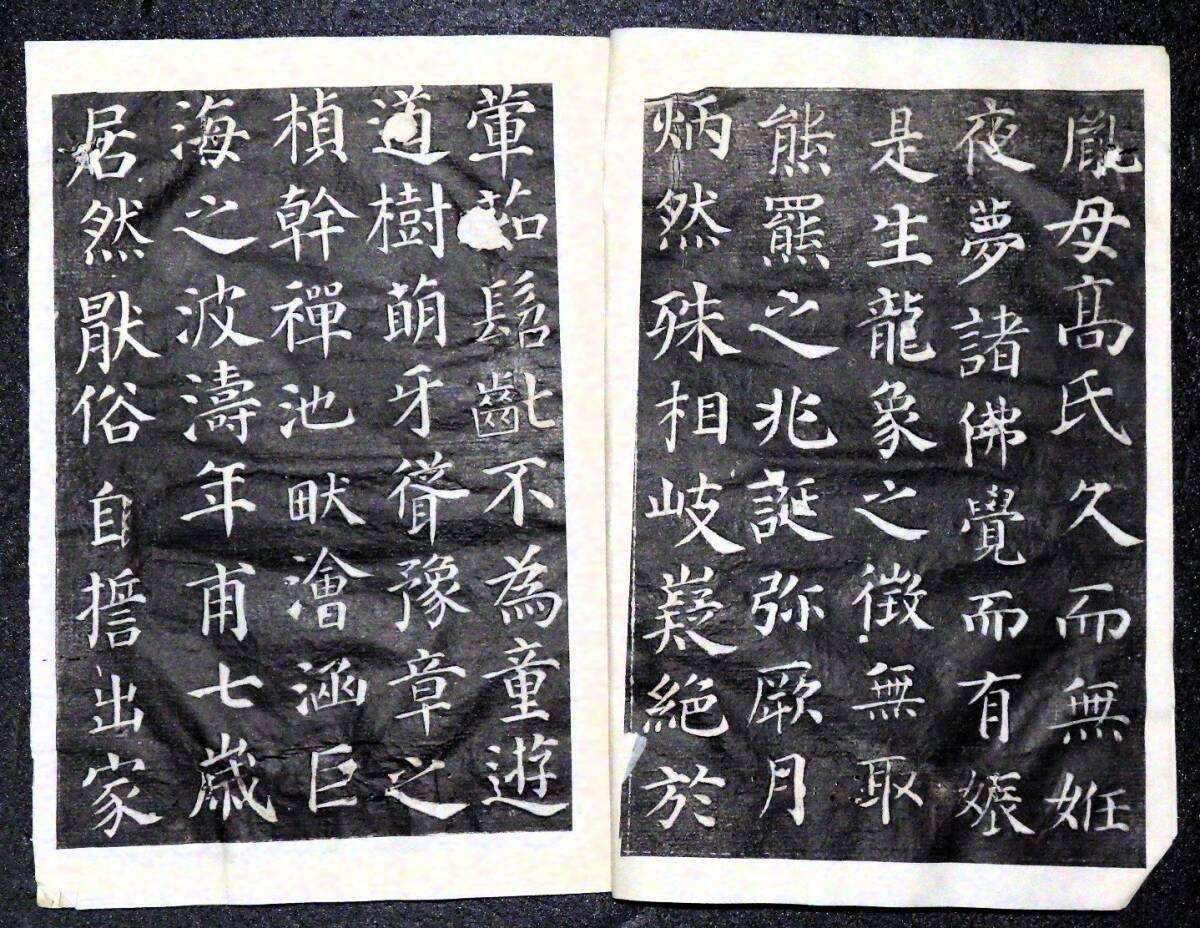 胤母髙氏久而無妊
夜夢諸佛覺而有娠
是生龍象之徵無取
熊羆之兆誕弥厥月
炳然殊相岐嶷絕於
葷茹髫齔不為童遊
道樹萌牙聳豫章之
楨幹禪池畎澮涵巨
海之波濤年甫七歲
居然猒俗自誓出家